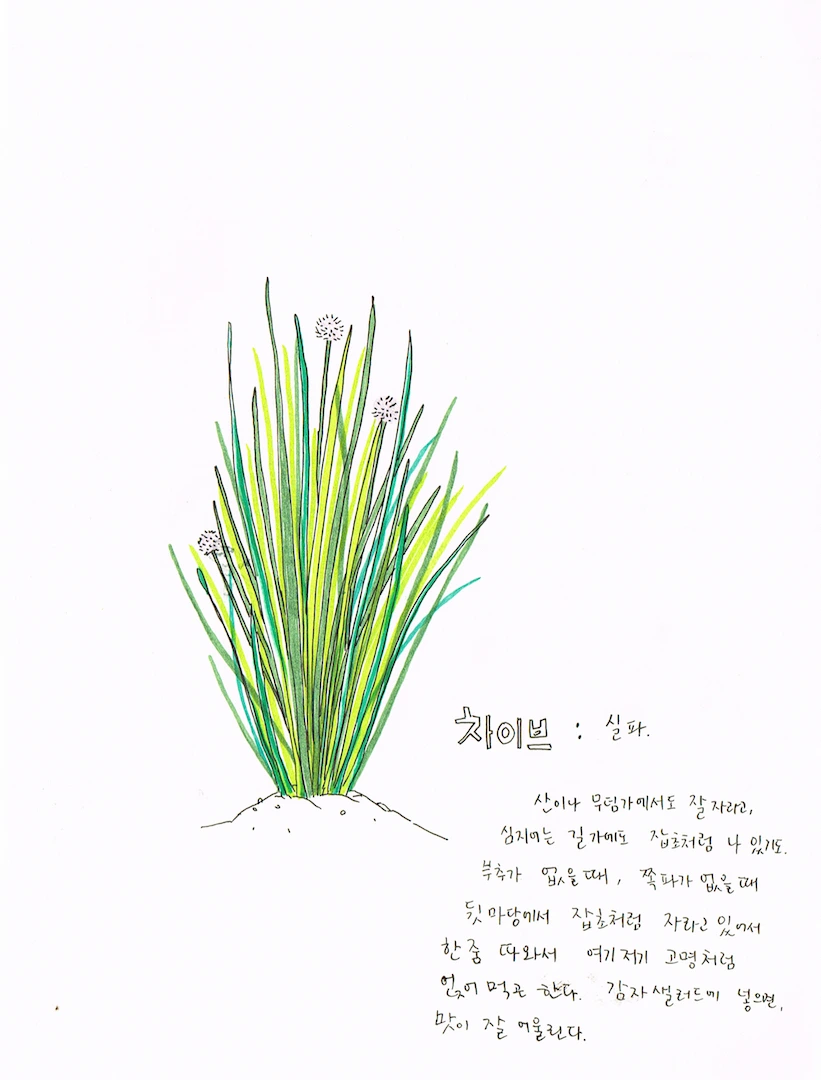 차이브 : 실파.
산이나 무덤가에서도 잘 자라고,
심지어는 길가에도 잡초처럼 나 있기도.
부추가 없을 때, 쪽파가 없을 때
뒷마당에서 잡초처럼 자라고 있어서
한 줌 따와서 여기저기 고명처럼
얹어 먹곤 한다. 감자샐러드에 넣으면,
맛이 잘 어울린다.